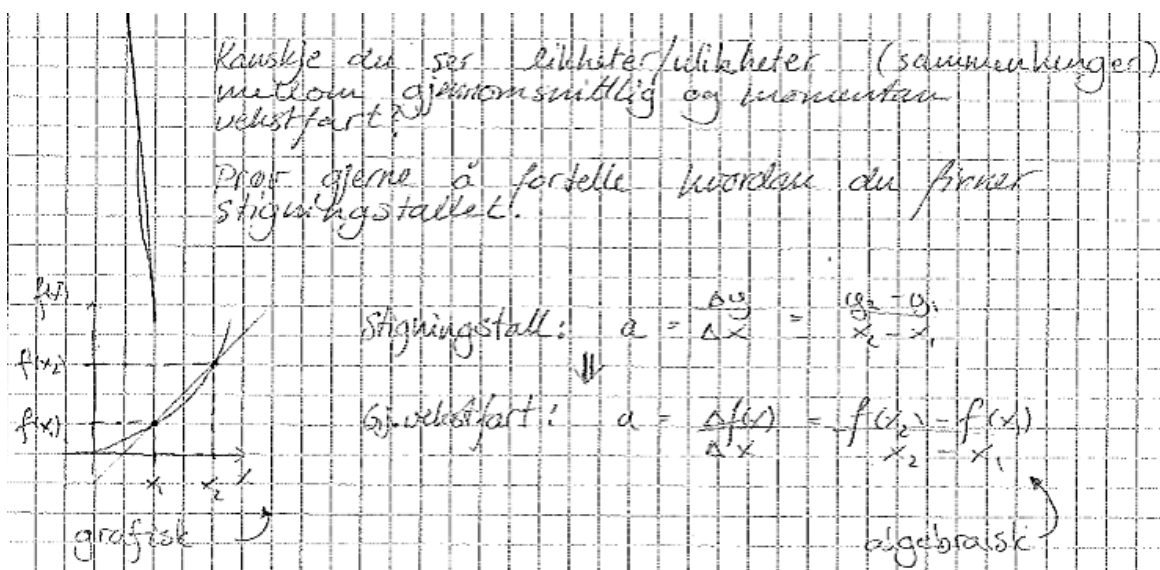 Kanskje du ser likheter/ulikheter (sammenhenger)
mellom gjennomsnittlig og momentan
vekstfart?
Prøv gjerne å fortelle hvordan du finner
stigningstallet!
Stigningstall: a = Δy/Δx = y₂ - y₁/x₂ - x₁
⇓
Gj.vekstfart: a = Δf(x)/Δx = f(x₂) - f(x₁)/x₂ - x₁
f(x₂)
f(x₁)
x₁ x₂ x
grafisk
algebraisk